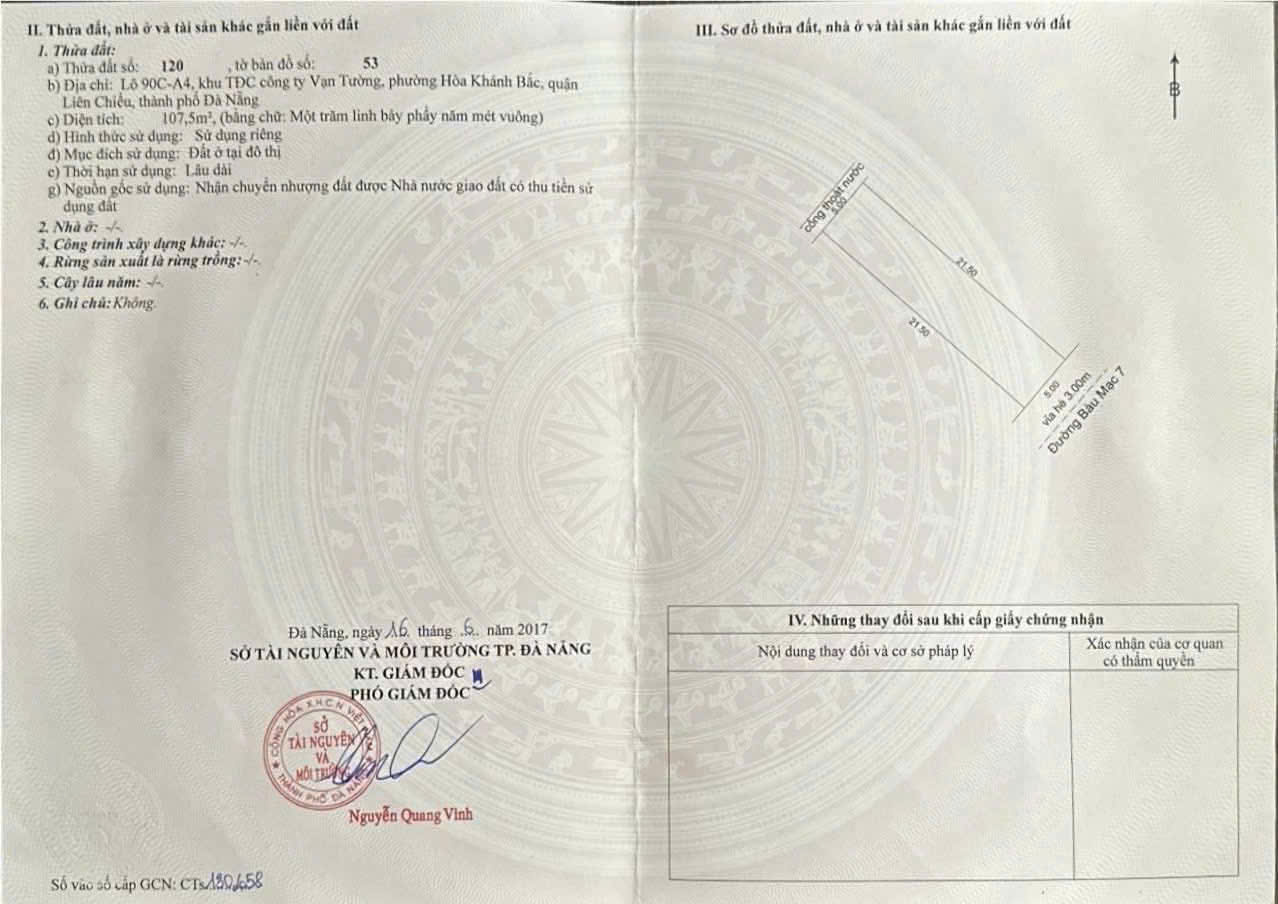 II. Thửa đất, nhà ở và tài sản khác gắn liền với đất
1. Thửa đất:
a) Thửa đất số: 120 , tờ bản đồ số: 53
b) Địa chỉ: Lô 90C-A4, khu TĐC công ty Vạn Tường, phường Hòa Khánh Bắc, quận
Liên Chiểu, thành phố Đà Nẵng
c) Diện tích: 107,5m², (bằng chữ: Một trăm linh bảy phẩy năm mét vuông)
d) Hình thức sử dụng: Sử dụng riêng
đ) Mục đích sử dụng: Đất ở tại đô thị
e) Thời hạn sử dụng: Lâu dài
g) Nguồn gốc sử dụng: Nhận chuyển nhượng đất được Nhà nước giao đất có thu tiền sử
dụng đất
2. Nhà ở: -/-.
3. Công trình xây dựng khác: -/-.
4. Rừng sản xuất là rừng trồng: -/-.
5. Cây lâu năm: -/-.
6. Ghi chú: Không.
Đà Nẵng, ngày 16 tháng 6 năm 2017
SỞ TÀI NGUYÊN VÀ MÔI TRƯỜNG TP. ĐÀ NẴNG
KT. GIÁM ĐỐC
PHÓ GIÁM ĐỐC
CỘNG HÒA X.H.C.N VIỆT NAM
SỞ
TÀI NGUYÊN
VÀ
MÔI TRƯỜNG
THÀNH PHỐ ĐÀ NẴNG
Nguyễn Quang Vinh
Số vào sổ cấp GCN: CTs
III. Sơ đồ thửa đất, nhà ở và tài sản khác gắn liền với đất
B
cống thoát nước
5.00
21.50
21.50
5.00
vỉa hè 3.00m
Đường Bàu Mạc 7
IV. Những thay đổi sau khi cấp giấy chứng nhận
Nội dung thay đổi và cơ sở pháp lý
Xác nhận của cơ quan
có thẩm quyền